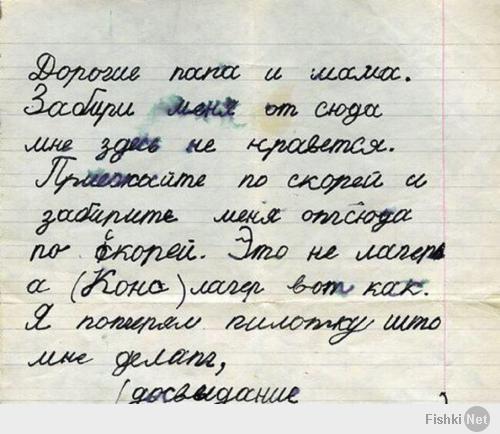 Дорогие папа и мама.
Забири меня от сюда
мне здесь не нравется.
Приезжайте по скорей и
забирите меня отсюда
по скорей. Это не лагерь
а (Конс) лагер вот как.
Я потерял пилотку што
мне делать,
(досвыдание )
Fishki Net